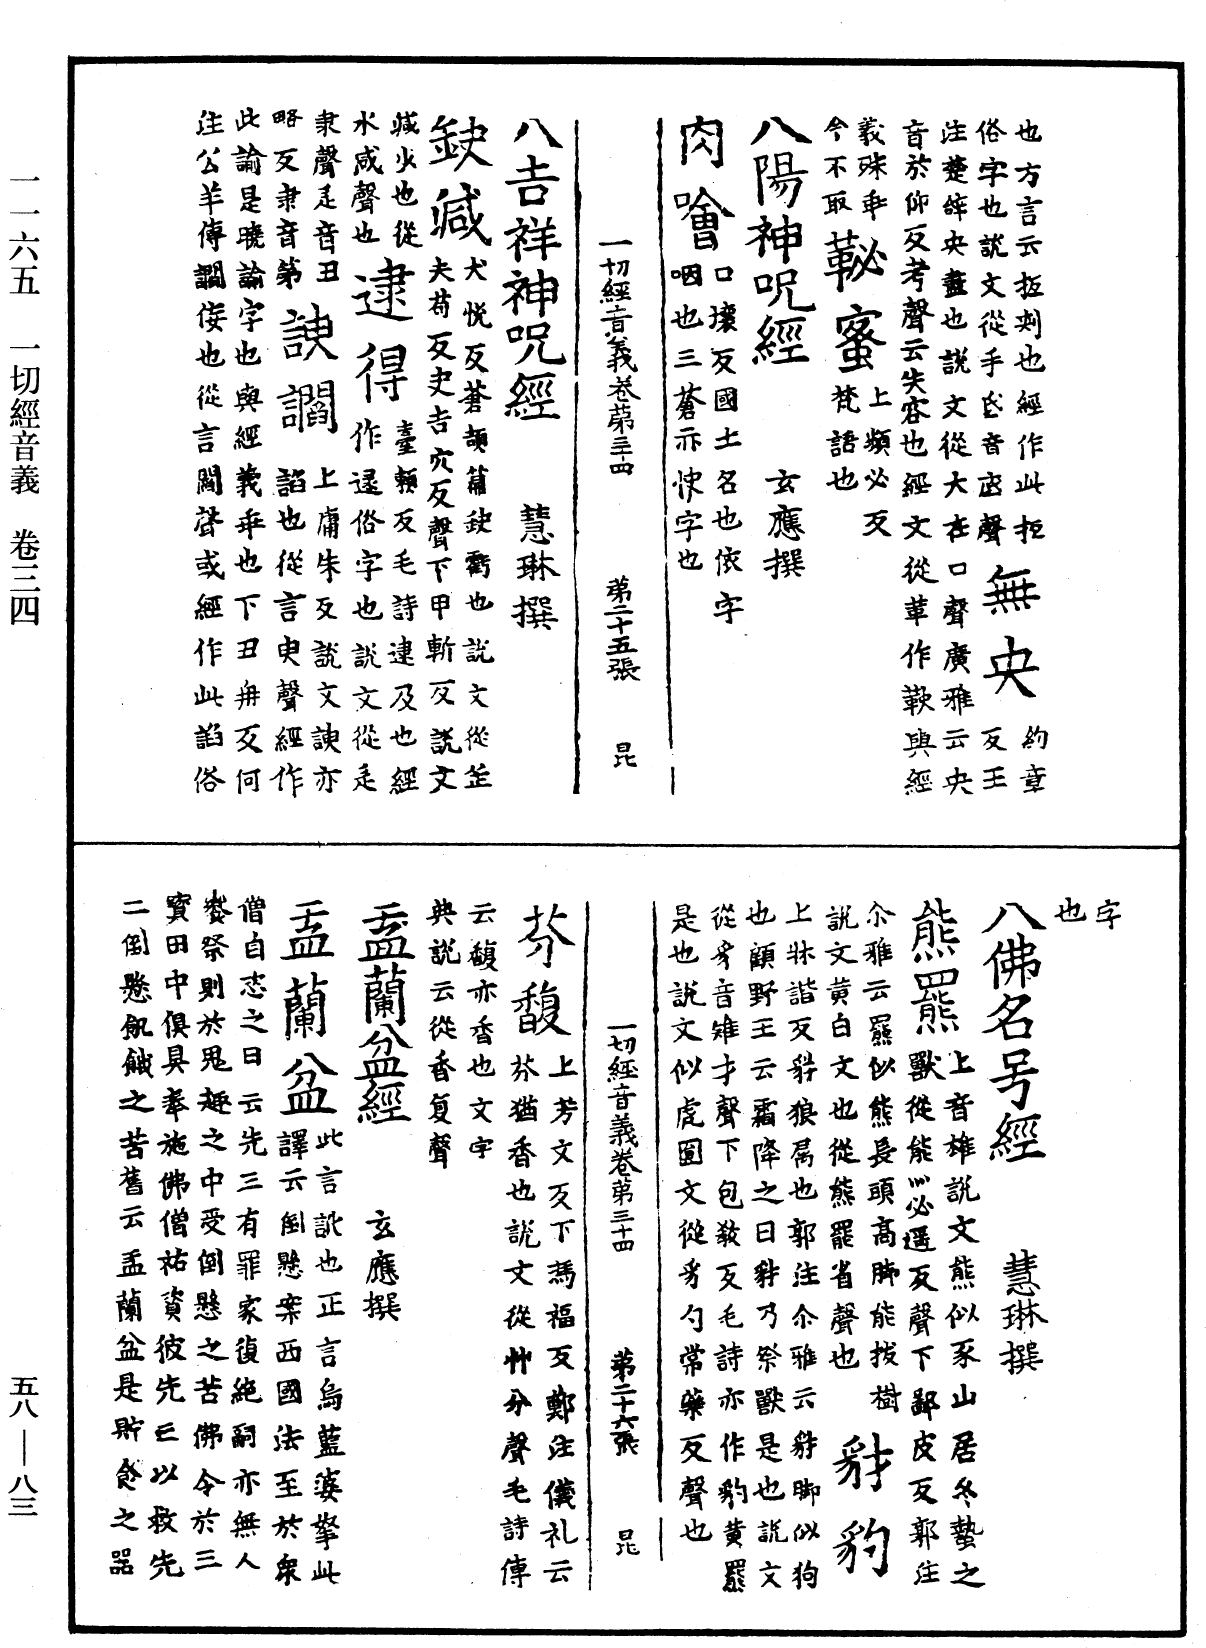 一一六五　一切經音義　卷三四
也方言云抵刾也經作此拒
俗字也說文從手氐音氐聲
無央
約章
反王
注楚辝央盡也說文從大在口聲廣雅云央
音於仰反考聲云失容也經文從革作鞅與經
義殊乖
今不取
䩛蜜
上頻必反
梵語也
八陽神呪經　玄應撰
肉噲
口壞反國土名也依字
咽也三蒼亦快字也
一切經音義卷苐三十四　苐二十五張　昆
八吉祥神呪經　慧琳撰
缺減
犬悅反蒼頡篇缺虧也說文從垂
夫苟反史吉穴反聲下甲斬反說文
減少也從
水咸聲也
逮得
臺頼反毛詩逮及也經
作逯俗字也說文從辵
隶聲辵音丑
略反隶音第
諛讇
上庸朱反說文諛亦
諂也從言臾聲經作
此論是曉論字也與經義乖也下丑冉反何
注公羊傳讇佞也從言閻聲或經作此諂俗
字
也
八佛名号經　慧琳撰
熊羆
上音雄說文熊似豕山居冬蟄之
獸從能灬必遥反聲下鄙皮反郭注
尒雅云羆似熊長頭髙脚能拔樹
說文黄白文也從熊罷省聲也
豺豹
上牀諧反豺狼屬也郭注尒雅云豺脚似狗
也顧野王云霜降之日豺乃祭獸是也說文
從豸音雉才聲下包教反毛詩亦作豹黄羆
是也說文似虎圎文從豸勺常藥反聲也
一切經音義卷苐三十四　苐二十六張　昆
芬馥
上芳文反下馮福反鄭注儀礼云
芬猶香也說文從艸分聲毛詩傳
云馥亦香也文字
典說云從香复聲
盂蘭盆經　玄應撰
盂蘭盆
此言訛也正言烏藍婆拏此
譯云倒懸案西國法至於衆
僧自恣之日云先三有罪家復絶嗣亦無人
饗祭則於鬼趣之中受倒懸之苦佛令於三
寳田中俱具奉施佛僧祐資彼先亡以救先
二倒懸飢餓之苦舊云盂蘭盆是貯食之器
五八—八三